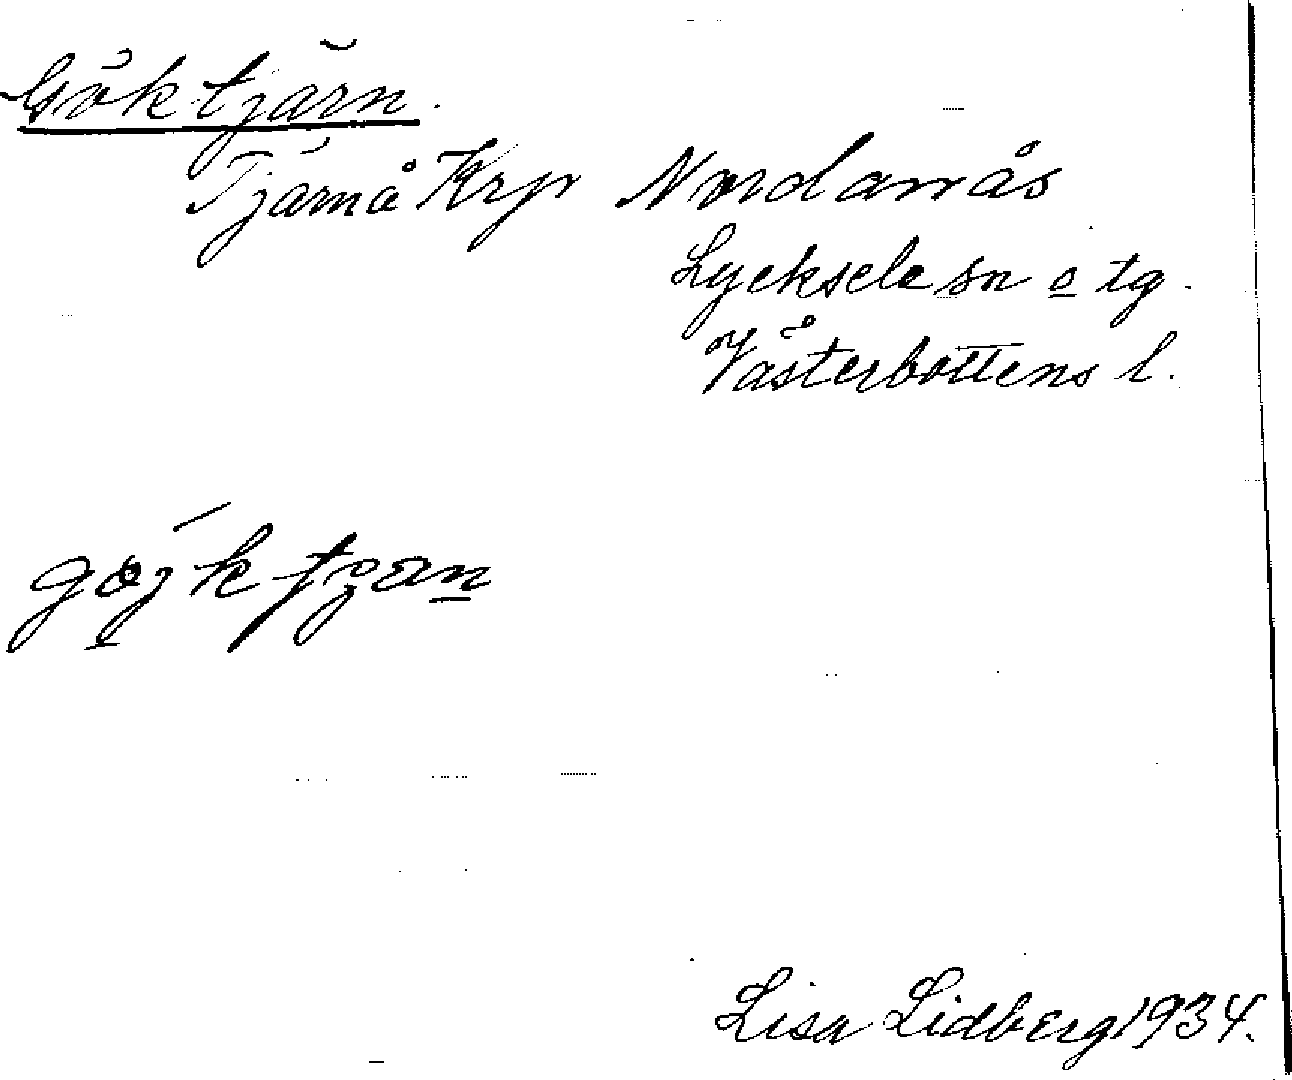 Göktjärn.
Tjärnå Krp Nordanås
Lycksele sn o tg.
Västerbottens l.
Lisa Lidberg 1934.